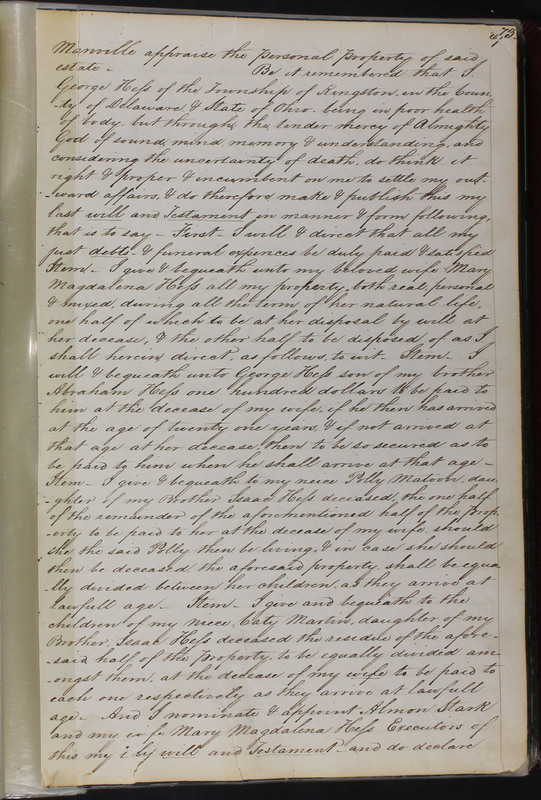 73
Manville appraise the Personal Property of said
estate - Be it remembered that I
George Hess of the Township of Kingston, in the Coun-
-ty of Delaware & State of Ohio. being in poor health
of body. but through the tender mercy of Almighty
God of sound mind memory & understanding, and
considering the uncertainty of death, do think it
right & proper & incumbent on me to settle my out-
-ward affairs, & do therefore make & publish this my
last will and Testament in manner & form following,
that is to say - First - I will & direct that all my
just debts - & funeral expences be duly paid & satisfied
Item - I give & bequeath unto my beloved wife Mary
Magdalena Hess all my property both real, personal
& mixed, during all the term of her natural life,
one half of which to be at her disposal by will at
her decease, & the other half to be disposed of as I
shall herein direct as follows, to wit. Item - I
will & bequeath unto George Hess son of my brother
Abraham Hess one hundred dollars to be paid to
him at the decease of my wife, if he then has arrived
at the age of twenty one years, & if not arrived at
that age at her decease, then to be so secured as to
be paid to him when he shall arrive at that age -
Item - I give & bequeath to my neice Polly Matoon, dau-
-ghter of my Brother Isaac Hess deceased, the one half
of the remainder of the aforementioned half of the Prop-
-erty to be paid to her at the decease of my wife, should
she the said Polly then be living, & in case she should
then be deceased the aforesaid property, shall be equa-
-lly divided between her children, as they arrive at
lawfull age - Item - I give and bequeath to the
children of my neice, Caty Martin, daughter of my
Brother, Isaac Hess deceased the residue of the afore-
-said half of the Property, to be equally divided am-
-ongst them, at the decease of my wife to be paid to
each one respectively as they arrive at lawfull
age - And I nominate & appoint Almon Stark
and my wife Mary Magdalena Hess Executors of
this my will and Testament - and do declare